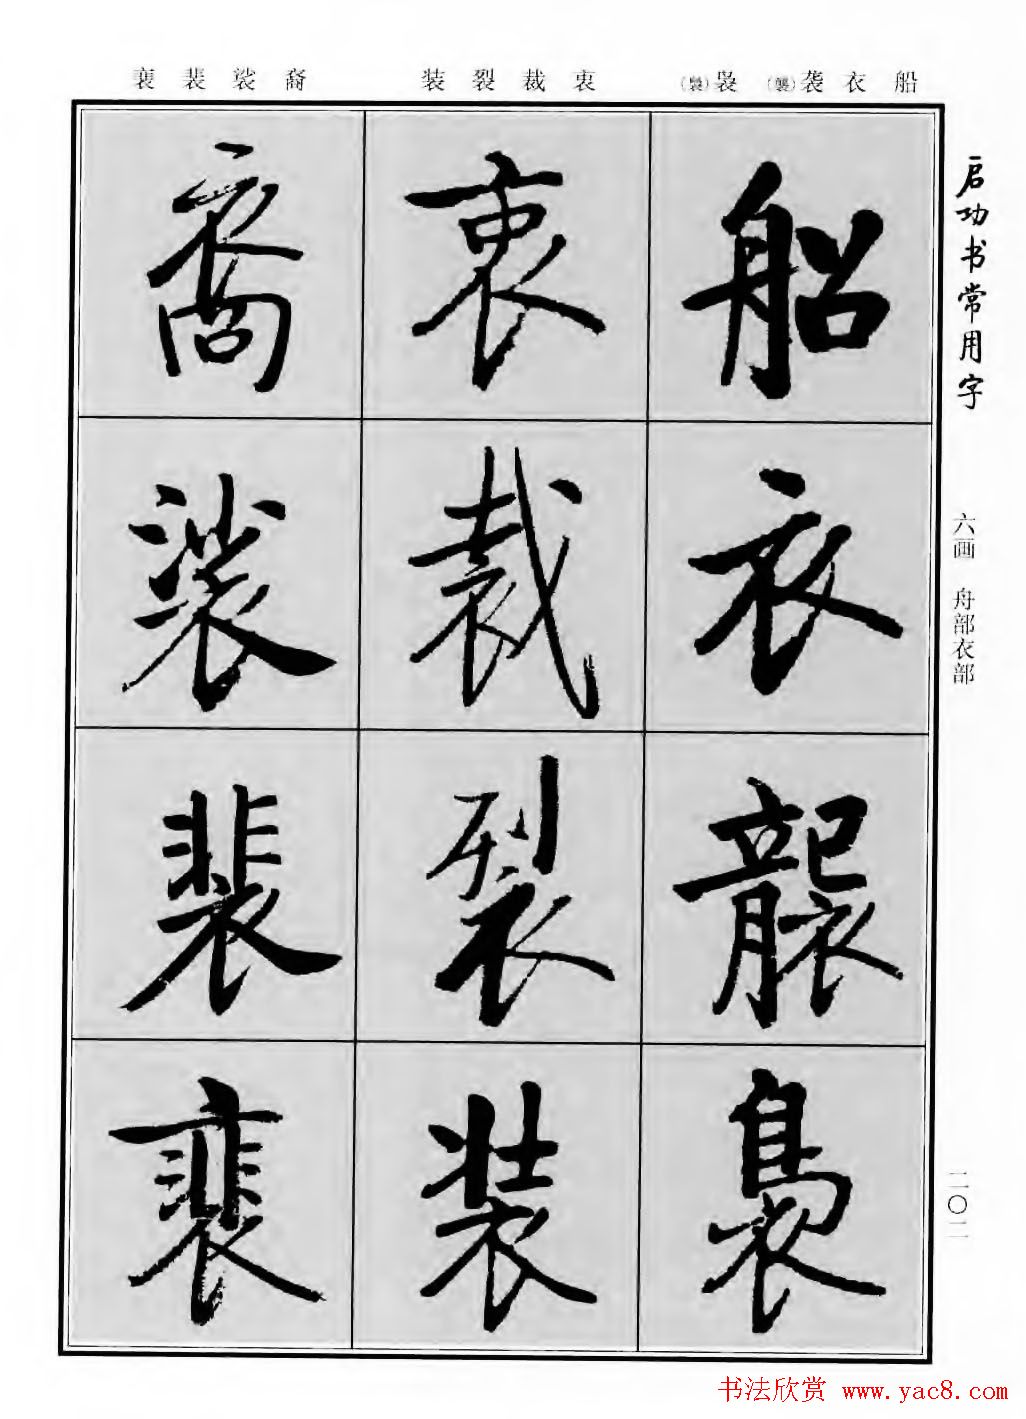 船衣袭（襲）袅（裊）
衷裁裂装
裔裟裴裵
启功书常用字
六画 舟部衣部
二〇二
船
衣
襲
裊
衷
裁
裂
装
裔
裟
裴
裵
书法欣赏 www.yac8.com